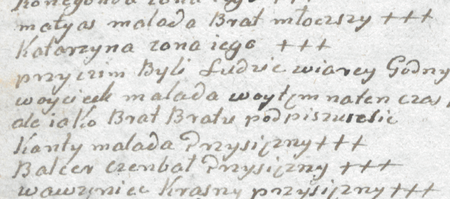 Konegonda zona iego +++
matyas malada Brat młoczszy +++
Katarzyna zona iego +++
przyczim Byli Ludzie wiarey Godny
woyciek malada woytym naten czas
ale iako Brat Bratu podpiszuiesie
Kanty malada Przysiężny +++
Balcer czenbał Przysiężny +++
wawrzyniec Krasny przysiężny +++